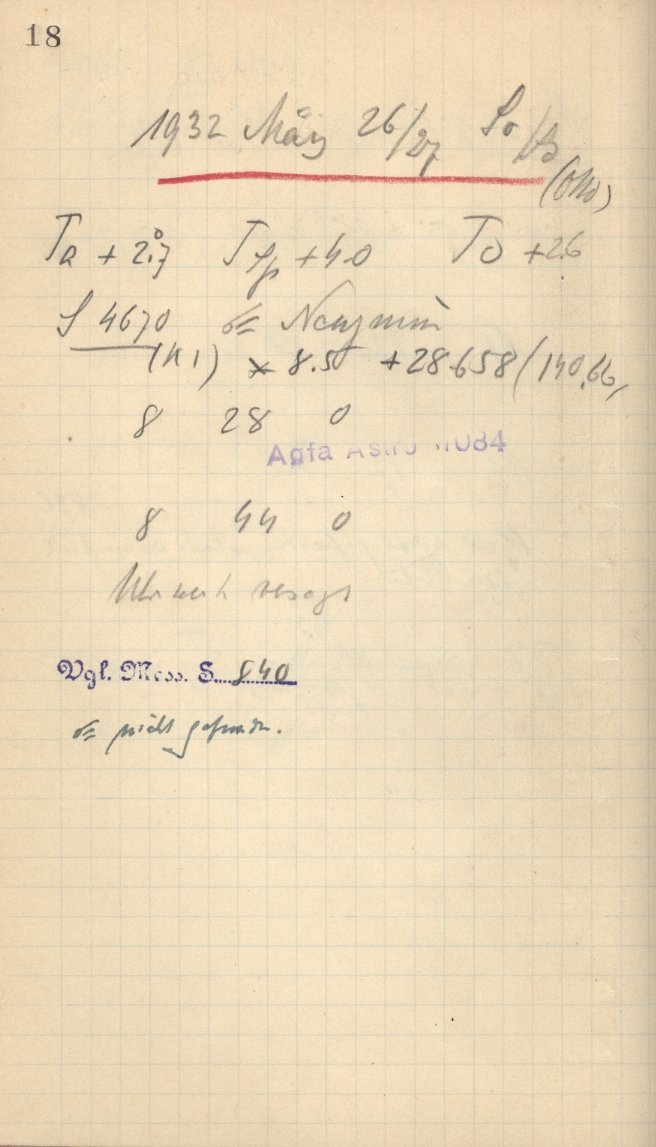 18
1932 März 26/27 So/
Ta + 2.7 Tsp + 4.0 To + 2.6
S 4670 ☄ Neujmin
(K1) × 8.5 + 28.658 (140.66,
8 28 0
Agfa Astro 1084
8 44 0
Uhrwerk versagt
Vgl. Mess. S. 840
☄ nicht gefunden.